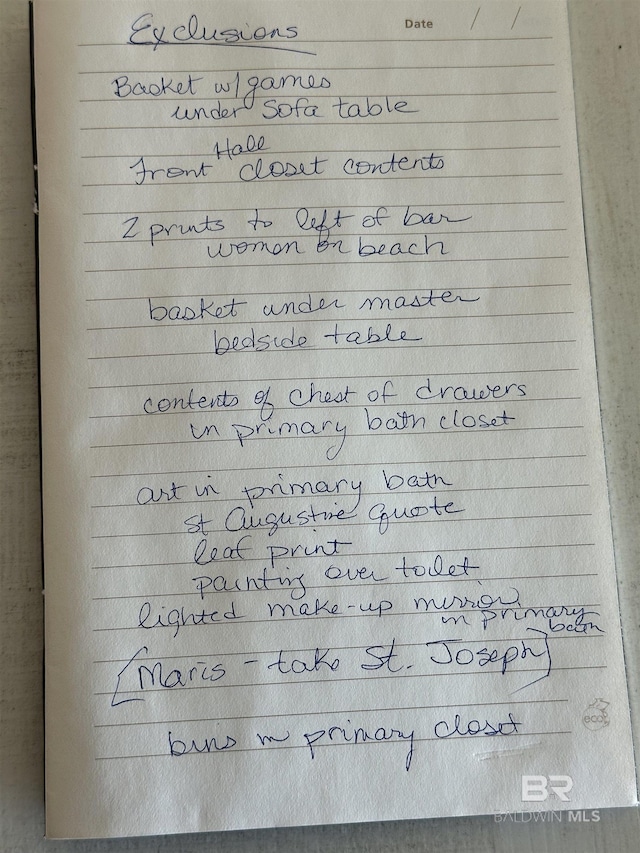 Exclusions
Date / /
Basket w/ games
under Sofa table
Hall
Front closet contents
2 prints to left of bar
women on beach
basket under master
bedside table
contents of chest of drawers
in primary bath closet
art in primary bath
St Augustine quote
leaf print
painting over toilet
lighted make-up mirror
in primary
bath
[Maris - take St. Joseph]
bins in primary closet
eco
BR
BALDWIN MLS